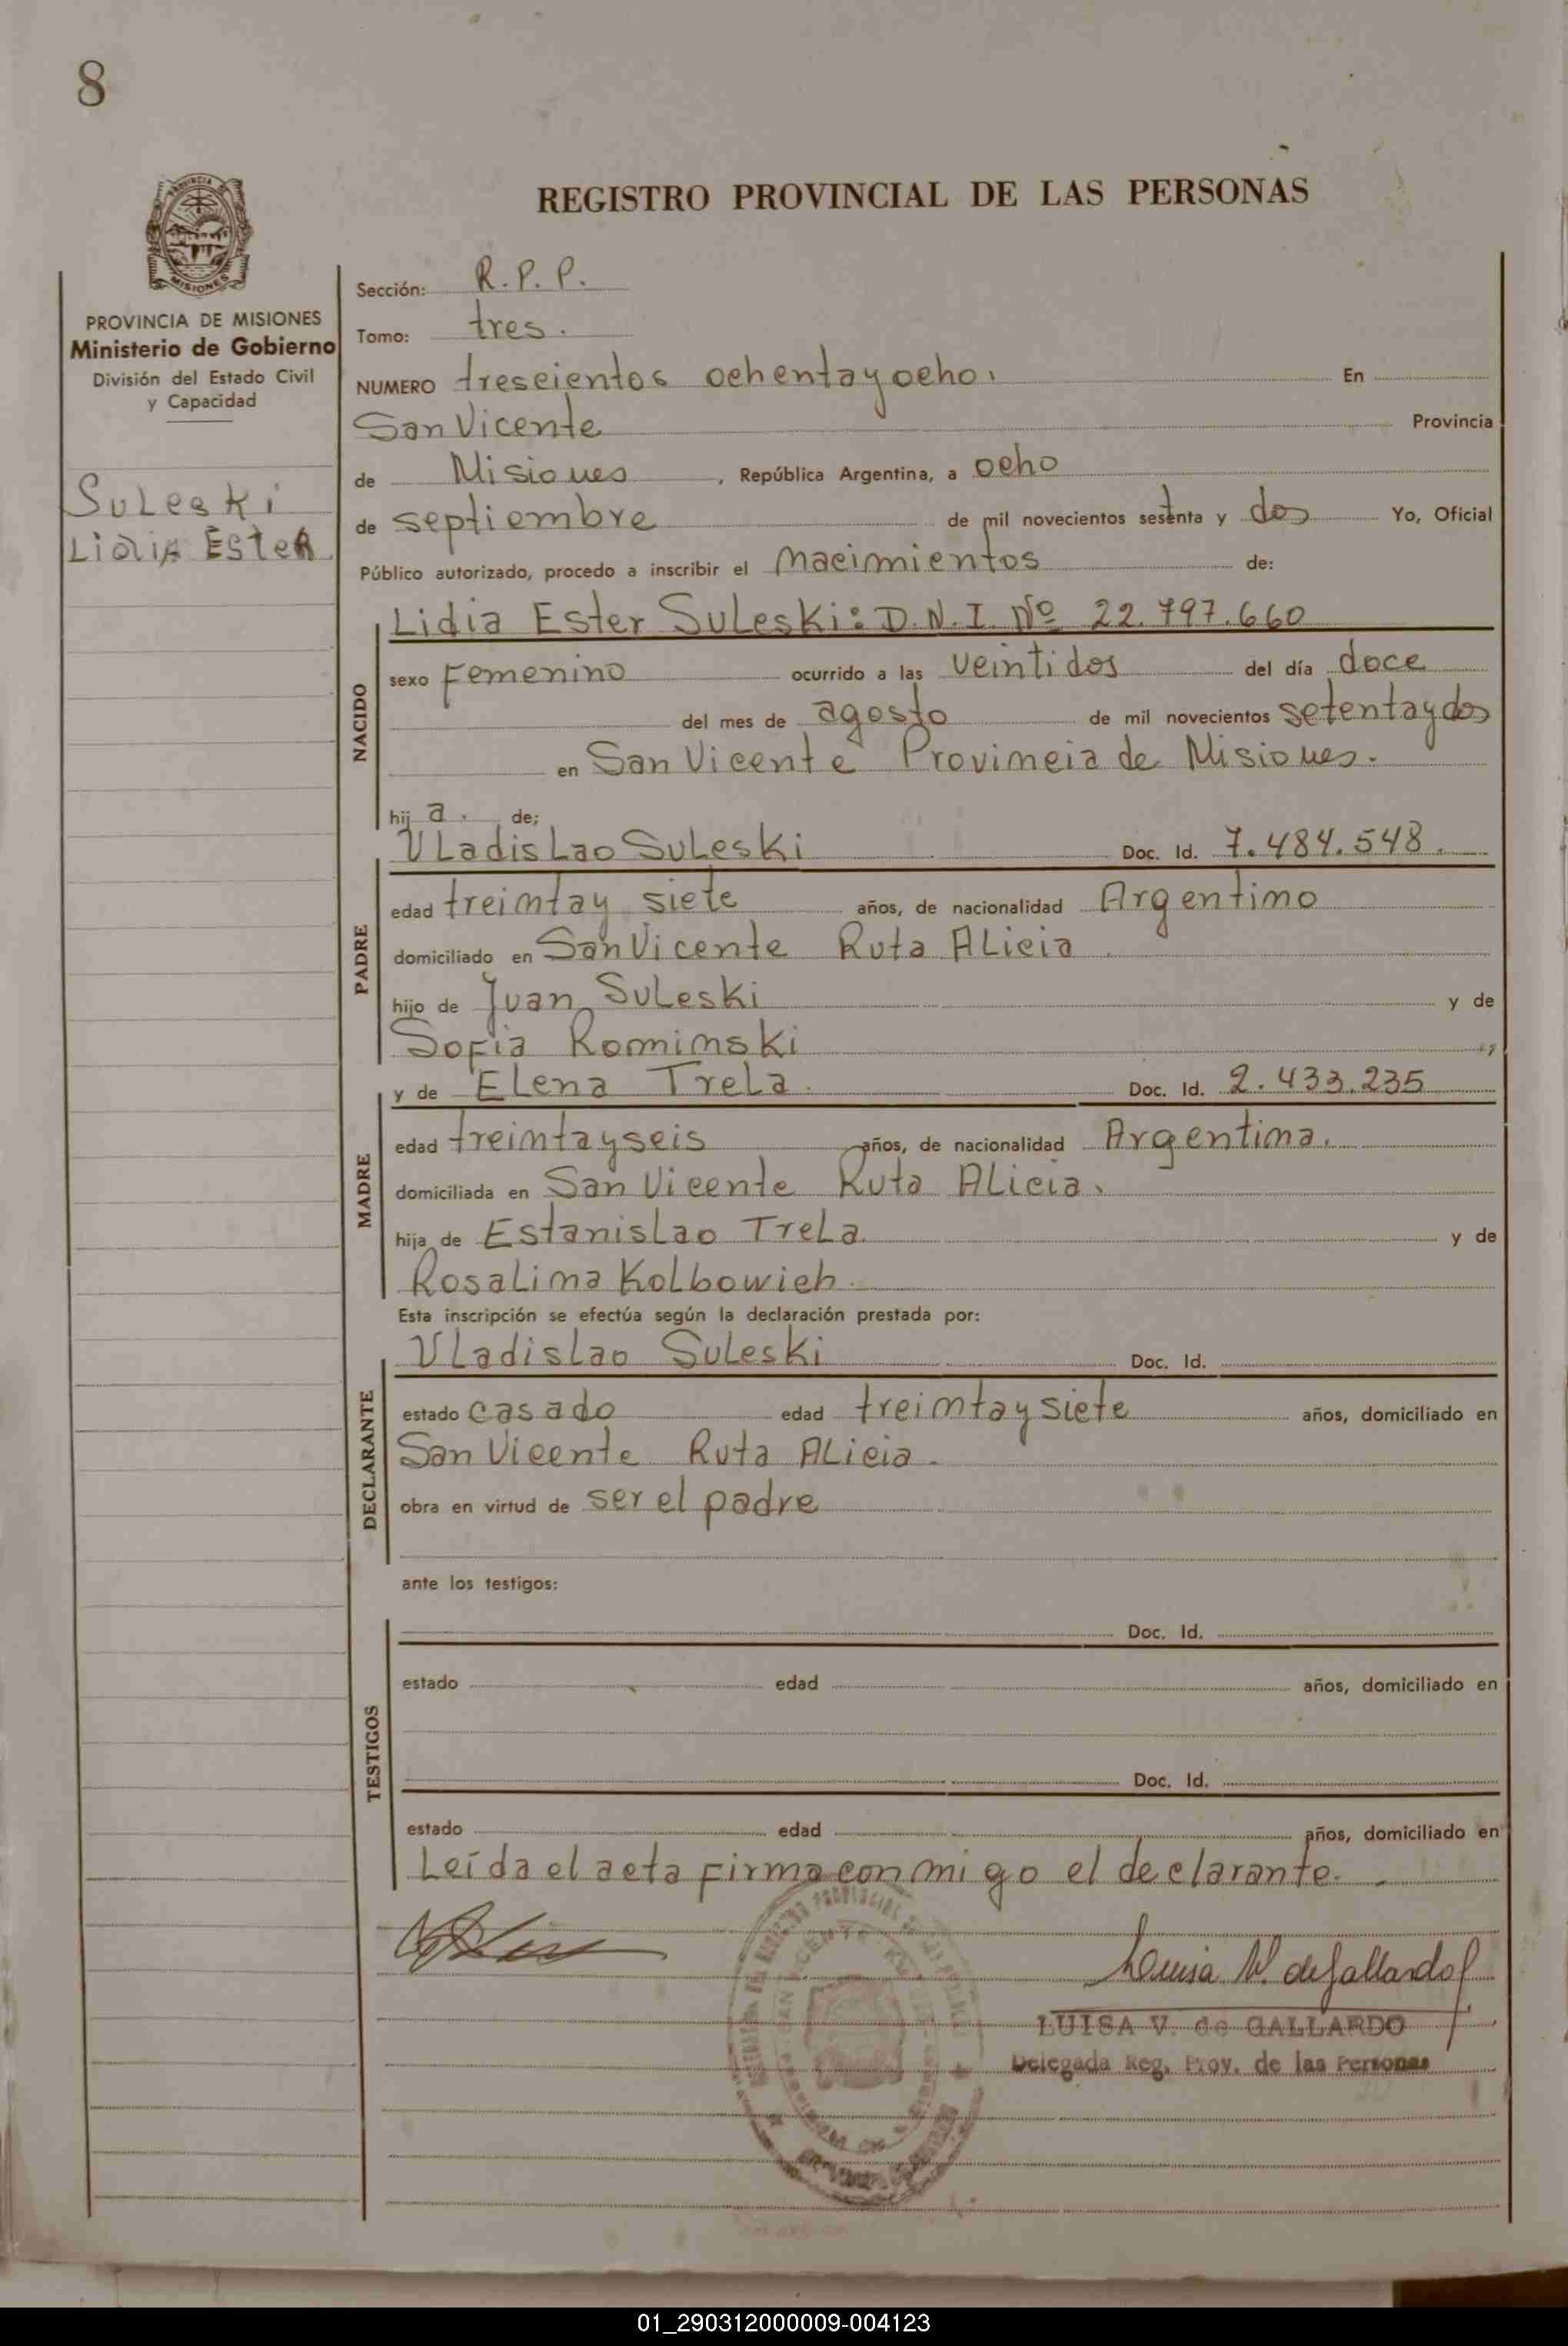 8
REGISTRO PROVINCIAL DE LAS PERSONAS
PROVINCIA DE MISIONES
Ministerio de Gobierno
División del Estado Civil
y Capacidad
Suleski
Lidia Ester
Sección: R. P. P.
Tomo: tres.
NUMERO trescientos ochenta y ocho. En
San Vicente Provincia
de Misiones, República Argentina, a ocho
de septiembre de mil novecientos setenta y dos Yo, Oficial
Público autorizado, procedo a inscribir el nacimientos de:
NACIDO
Lidia Ester Suleski: D.N.I. Nº 22.797.660
sexo Femenino ocurrido a las veintidos del día doce
del mes de agosto de mil novecientos setenta y dos
en San Vicente Provincia de Misiones.
hij a. de;
PADRE
Vladislao Suleski Doc. Id. 7.484.548.
edad treinta y siete años, de nacionalidad Argentino
domiciliado en San Vicente Ruta Alicia
hijo de Juan Suleski y de
Sofia Rominski
MADRE
y de Elena Trela. Doc. Id. 2.433.235
edad treinta y seis años, de nacionalidad Argentina.
domiciliada en San Vicente Ruta Alicia.
hija de Estanislao Trela. y de
Rosalina Kolbowich.
Esta inscripción se efectúa según la declaración prestada por:
DECLARANTE
Vladislao Suleski Doc. Id.
estado casado edad treinta y siete años, domiciliado en
San Vicente Ruta Alicia.
obra en virtud de ser el padre
ante los testigos:
TESTIGOS
Doc. Id.
estado edad años, domiciliado en
Doc. Id.
estado edad años, domiciliado en
Leída el acta firma conmigo el declarante.
Luisa V. de Gallardo
LUISA V. de GALLARDO
Delegada Reg. Prov. de las Personas
01_290312000009-004123